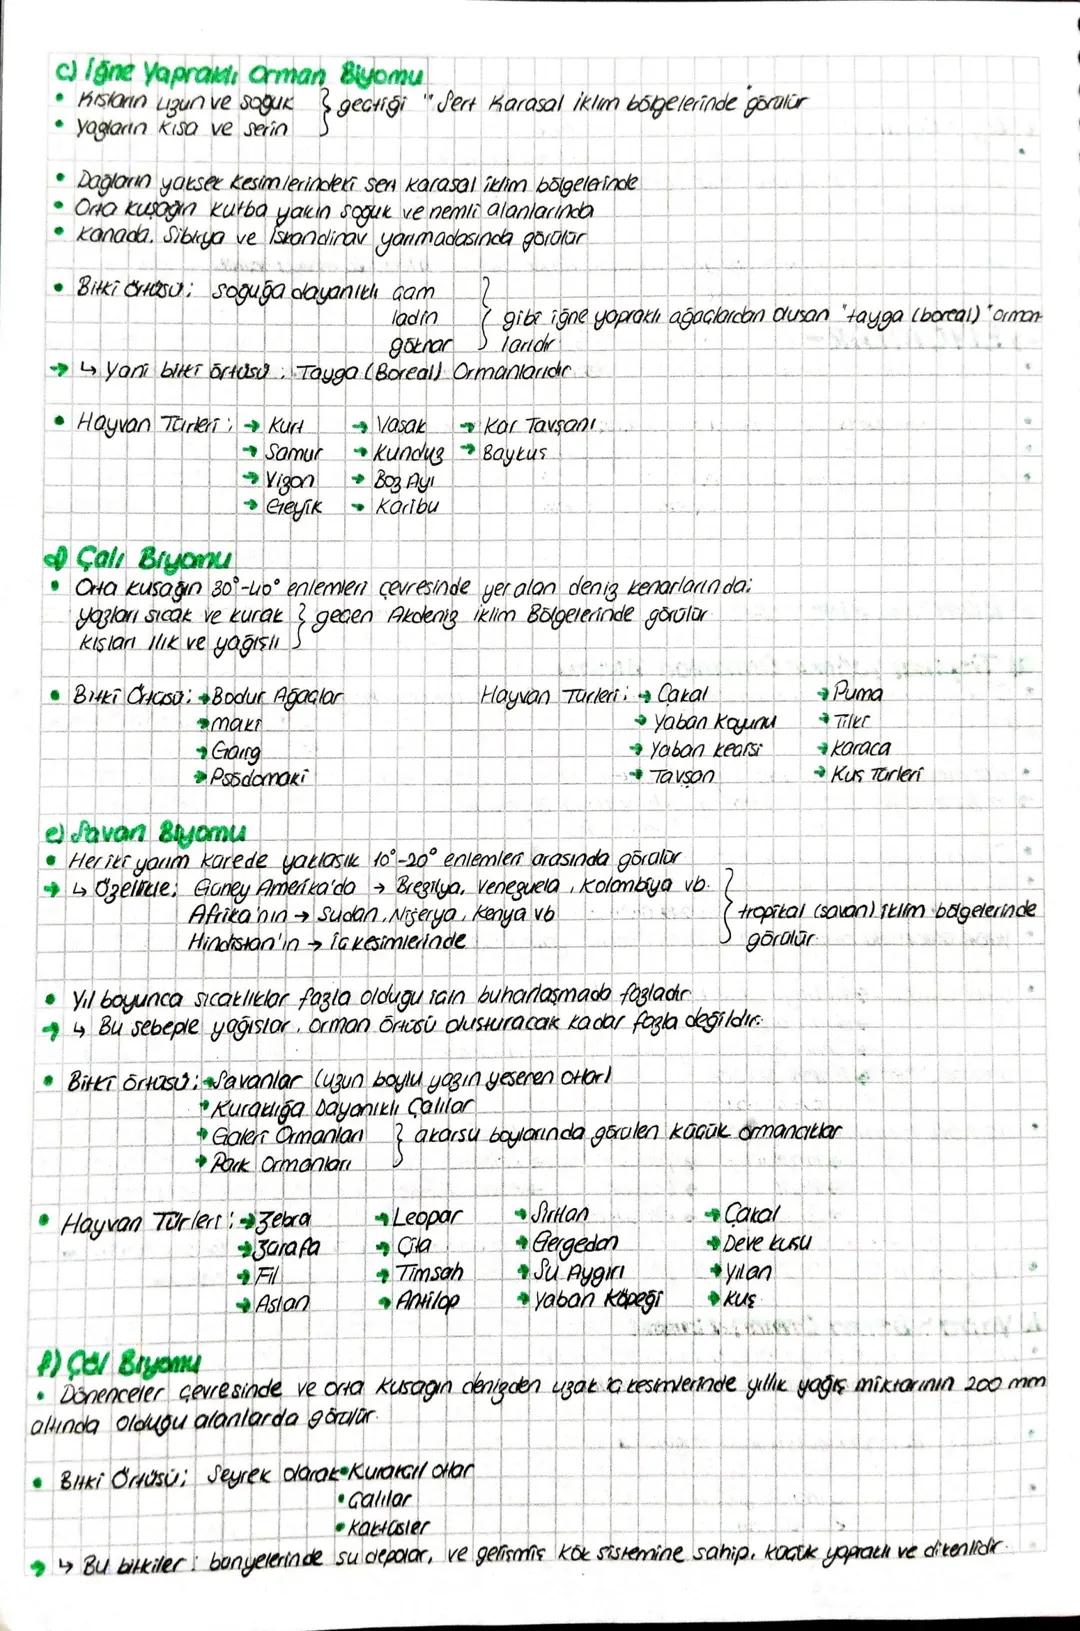 c) İğne Yapraklı Orman Biyomu
• Kışların uzun ve soğuk } geçtiği "Sert Karasal iklim bölgelerinde" görülür
• Yazların kısa ve serin
• Dağların yüksek kesimlerindeki sert karasal iklim bölgelerinde
• Orta kuşağın kutba yakın soğuk ve nemli alanlarında
• Kanada, Sibirya ve İskandinav yarımadasında görülür
• Bitki Örtüsü; soğuğa dayanıklı çam
ladin } gibi iğne yapraklı ağaçlardan oluşan "tayga (boreal)" orman-
göknar larıdır
→ ↳ Yani bitki örtüsü : Tayga (Boreal) Ormanlarıdır
• Hayvan Türleri ; → Kurt → Vaşak → Kar Tavşanı
→ Samur → Kunduz → Baykuş
→ Vizon → Boz Ayı
→ Geyik → Karibu
d) Çalı Biyomu
• Orta kuşağın 30°-40° enlemleri çevresinde yer alan deniz kenarlarında;
yazları sıcak ve kurak } geçen Akdeniz iklim Bölgelerinde görülür
kışları ılık ve yağışlı
• Bitki Örtüsü; → Bodur Ağaçlar Hayvan Türleri ; → Çakal → Puma
→ maki → Yaban Koyunu → Tilki
→ Garig → Yaban keçisi → Karaca
→ Psödomaki → Tavşan → Kuş Türleri
e) Savan Biyomu
• Her iki yarım kürede yaklaşık 10°-20° enlemleri arasında görülür
→ ↳ Özellikle; Güney Amerika'da → Brezilya, Venezuela, Kolombiya vb.
Afrika'nın → Sudan, Nijerya, Kenya vb } tropikal (savan) iklim bölgelerinde
Hindistan'ın → iç kesimlerinde görülür.
• Yıl boyunca sıcaklıklar fazla olduğu için buharlaşmada fazladır
→ ↳ Bu sebeple yağışlar, orman örtüsü oluşturacak kadar fazla değildir.
• Bitki örtüsü ; → Savanlar (uzun boylu yazın yeşeren otlar)
→ Kuraklığa Dayanıklı Çalılar
→ Galeri Ormanları } akarsu boylarında görülen küçük ormancıklar
→ Park Ormanları
• Hayvan Türleri ; → Zebra → Leopar → Sırtlan → Çakal
→ Zürafa → Çita → Gergedan → Deve kuşu
→ Fil → Timsah → Su Aygırı → Yılan
→ Aslan → Antilop → Yaban Köpeği → Kuş
f) Çöl Biyomu
• Dönenceler çevresinde ve orta kuşağın denizden uzak iç kesimlerinde yıllık yağış miktarının 200 mm
altında olduğu alanlarda görülür.
• Bitki Örtüsü; Seyrek olarak • Kurakcıl otlar
• Çalılar
• Kaktüsler
→ ↳ Bu bitkiler : bünyelerinde su depolar, ve gelişmiş kök sistemine sahip, küçük yapraklı ve dikenlidir.